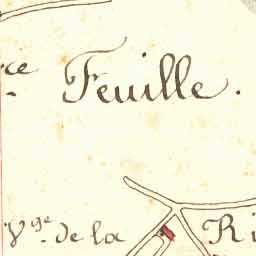 re Feuille.
Vge de la Ri